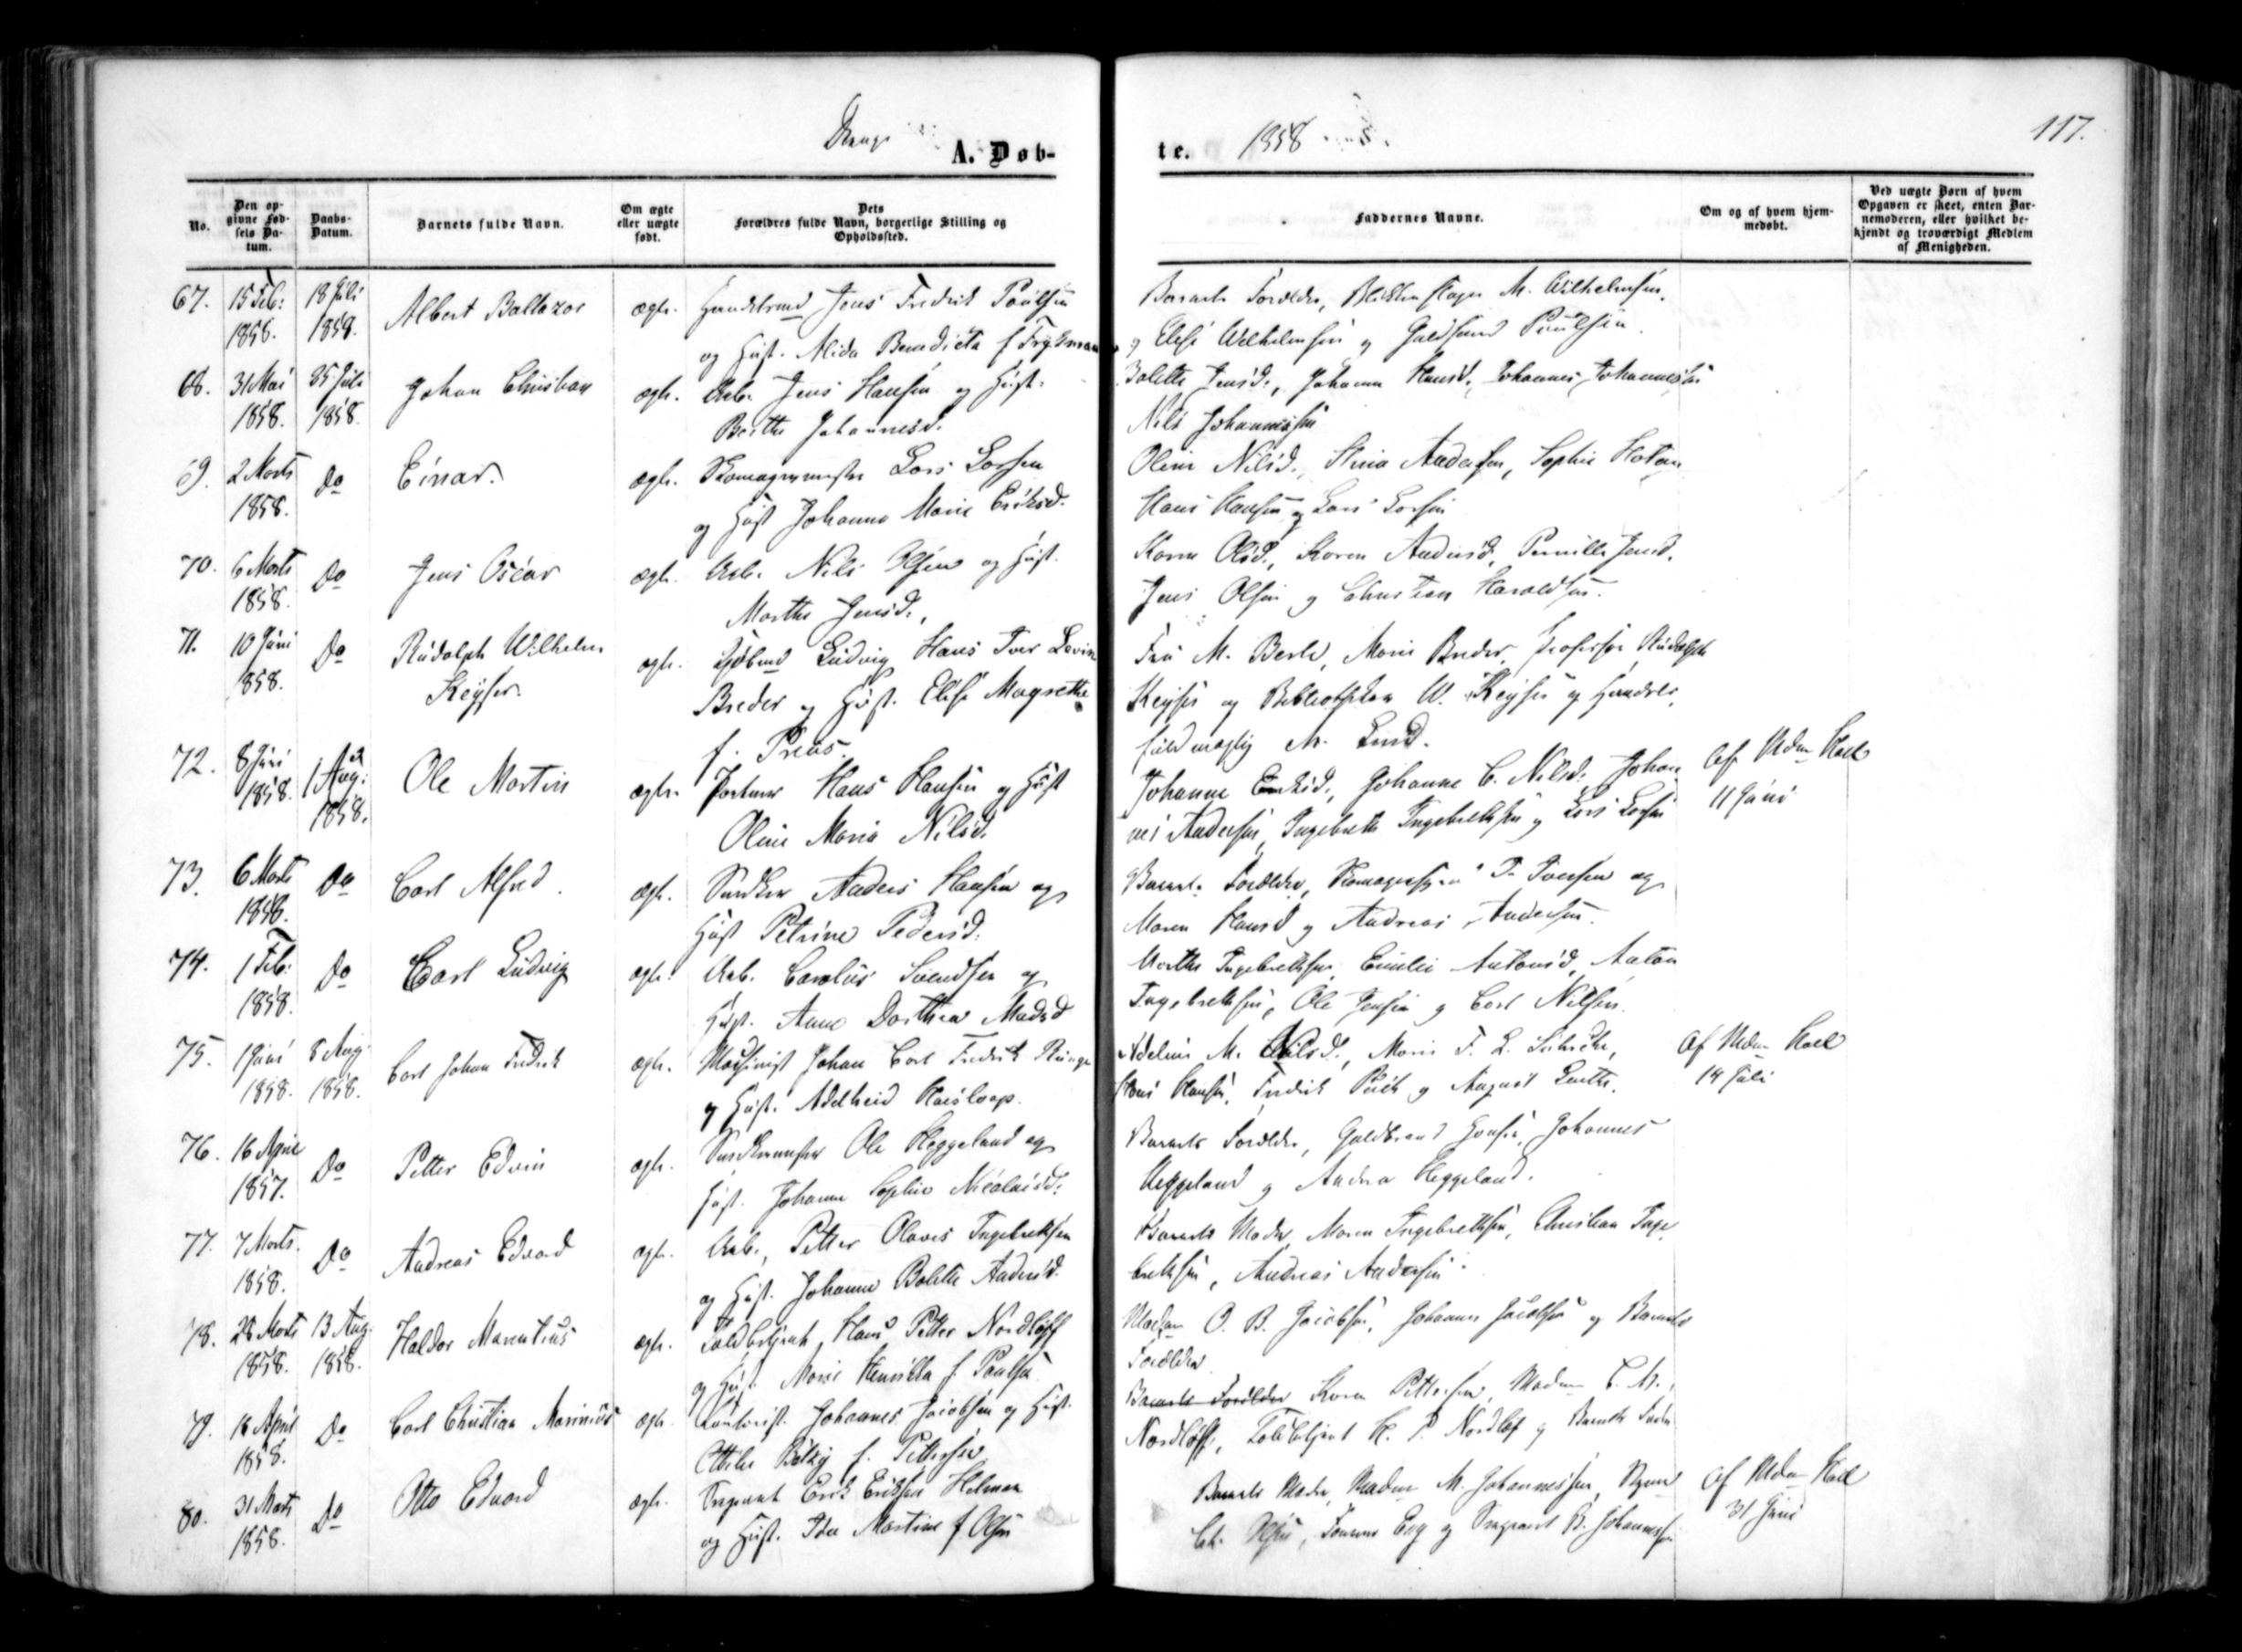 Drenge
A. Døb-
te. 1858
117.
No.
Den op-
givne Fød-
sels Da-
tum.
Daabs-
Datum.
Barnets fulde Navn.
Om ægte
eller uægte
født.
Dets
Forældres fulde Navn, borgerlige Stilling og
Opholdssted.
Faddernes Navne.
Om og af hvem hjem-
medøbt.
Ved uægte Børn af hvem
Opgaven er skeet, enten Bar-
nemoderen, eller hvilket be-
kjendt og troværdigt Medlem
af Menigheden.
67. 15 Feb: 18 Juli Albert Baltazar ægte. Jens Fredrik Paulsen
1858. 1858. og Hust. Alida Benedicta f
Barnets Forældre, M. Wilhelmsen,
og Elise Wilhelmsen og Paulsen.
68. 31 Mai 25 Juli Johan Christian ægte. Arb. Jens Hansen og Hust.
1858. 1858. Berthe Johannesd.
Bolette Jensd., Johanne Hansd., Johannes Johannessen
Nils Johannessen
69. 2 Marts Do Einar. ægte. Skomagermester Lars Larsen
1858. og Hust Johanne Marie Eriksd.
Oline Nilsd., Andersen, Sophie
Hans Hansen og Lars Larsen
70. 6 Marts Do Jens Oscar ægte. Arb. Nils Olsen og Hust.
1858. Marthe Jensd.,
Karen Olsd., Karen Andersd., Pernille Jensd.
Jens Olsen og Christian Haraldsen.
71. 10 Juni Do Rudolph Wilhelm ægte. Ludvig Hans Iver
1858. Keyser. Breder og Hust. Elise Magrethe
f. Preus.
Fru M. Marie Breder, Professor Rudolph
Keyser og W. Keyser og Handels
fuldmægtig M. Lund.
72. 8 Juni 1 Aug: Ole Martin ægte. Hans Hansen og Hust
1858. 1858. Oline Maria Nilsd.
Johanne Johanne C. Nilsd. Johan
nes Andersen, Ingebreth Ingebrethsen og Lars Larsen
Af Mdm
11 Juni
73. 6 Marts Do Carl Alfred. ægte. Snedker Anders Hansen og
1858. Hust Petrine Pedersd.
Barnets Forældre, Iversen og
Maren Hansd og Andreas Andersen.
74. 1 Feb: Do Carl Ludvig ægte. Arb. Carolus Svendsen og
1858. Hust. Anne Dorthea Madsd
Marthe Ingebrethsen, Emilie Antonsd, Anton
Ingebrethsen, Ole Jensen og Carl Nilsen.
75. 1 Juni 8 Aug. Carl Johan Fredrik ægte. Maskinist Johan Carl Fredrik Runge
1858. 1858. og Hust. Adelheid
Adeline M. Nilsd., Marie F. L.
Hans Hansen, Fredrik og August
Af Mdm
14 Juli
76. 16 April Do Petter Edvin ægte. Ole Heggeland og
1857. Hust. Johanne Sophie Nicolaisd.
Barnets Forældre, Guldbrand Johannes
Heggeland og Andrea Heggeland.
77. 7 Marts. Do Andreas Edvard ægte. Arb. Petter Olaves Ingebrethsen
1858. og Hust. Johanne Bolette Andersd.
Barnets Moder, Maren Ingebrethsen, Christian Inge
brethsen, Andreas Andersen.
78. 28 Marts 13 Aug. Haldor ægte. Toldbetjent Hans Petter Nordløff
1858. 1858. og Hust. Marie Henrikka f Paulsen
Madam O. B. Jacobsen, Johannes Jacobsen og Barnets
Forældre
79. 18 April Do Carl Christian Marinius ægte. Johannes Jacobsen og Hust.
1858. f. Pettersen
Barnets Forældre Karen Pettersen, Madam
Nordløff, Toldbetjent H. P. Nordløf og Barnets Fader
80. 31 Marts Do Otto Edvard ægte. Sergeant Erik Eriksen Holman
1858. og Hust. Ida Martine f Olsen
Barnets Moder, Madam M. Johannessen,
Chr. Olsen, og Sergeant B. Johannessen
Af Mdm
31 Juni